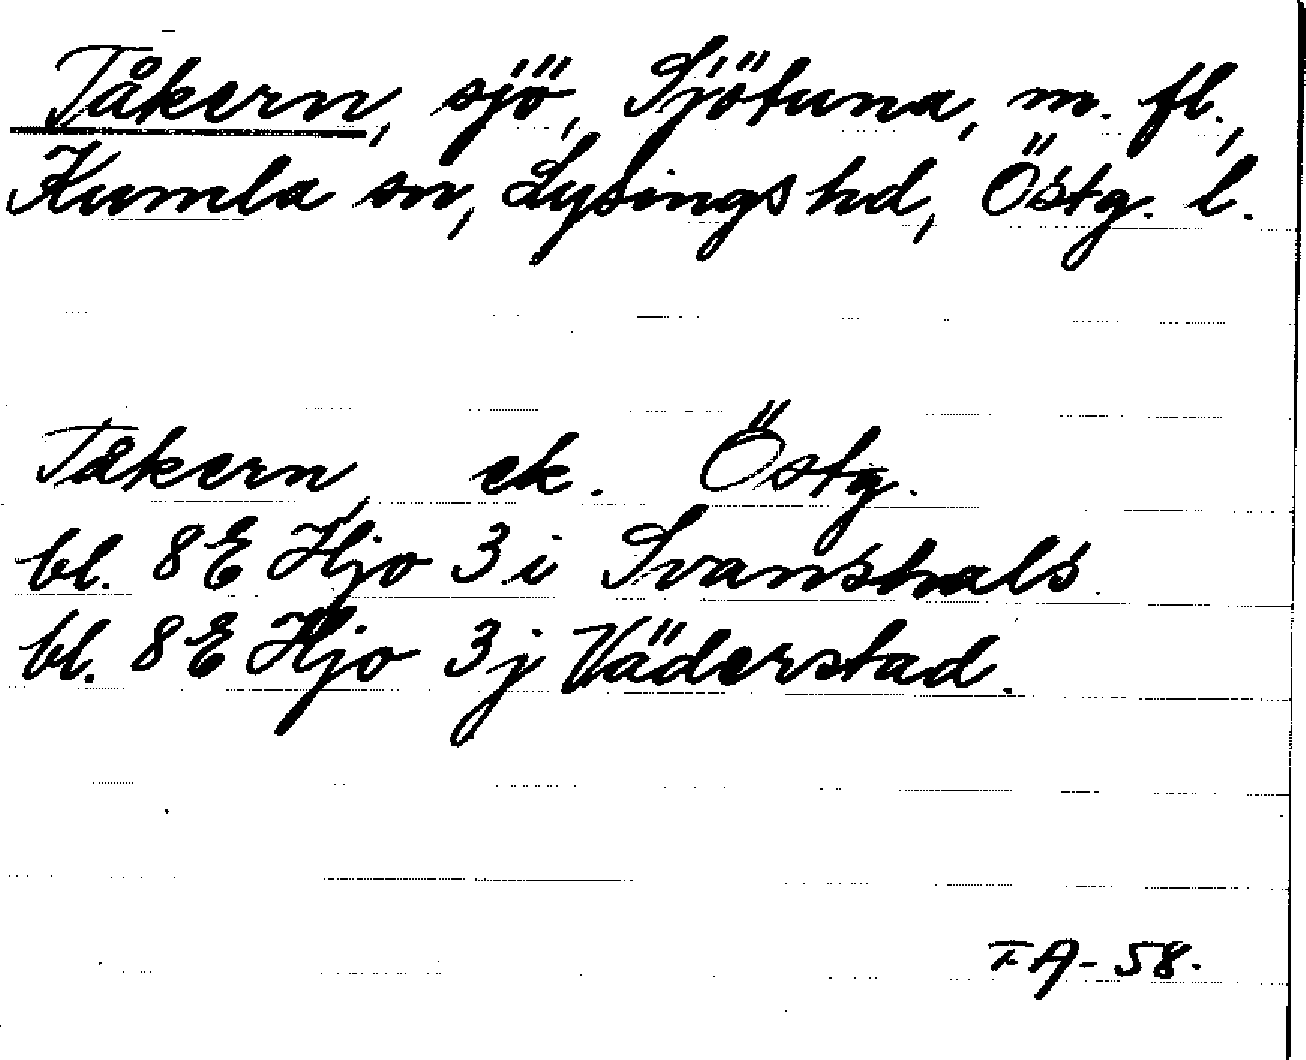 Tåkern, sjö, Sjötuna, m. fl.,
Kumla sn, Lysings hd, Östg. l.
Tåkern ek. Östg.
bl. 8E Hjo 3i Svanshals.
bl. 8E Hjo 3j Väderstad.
FA-58.